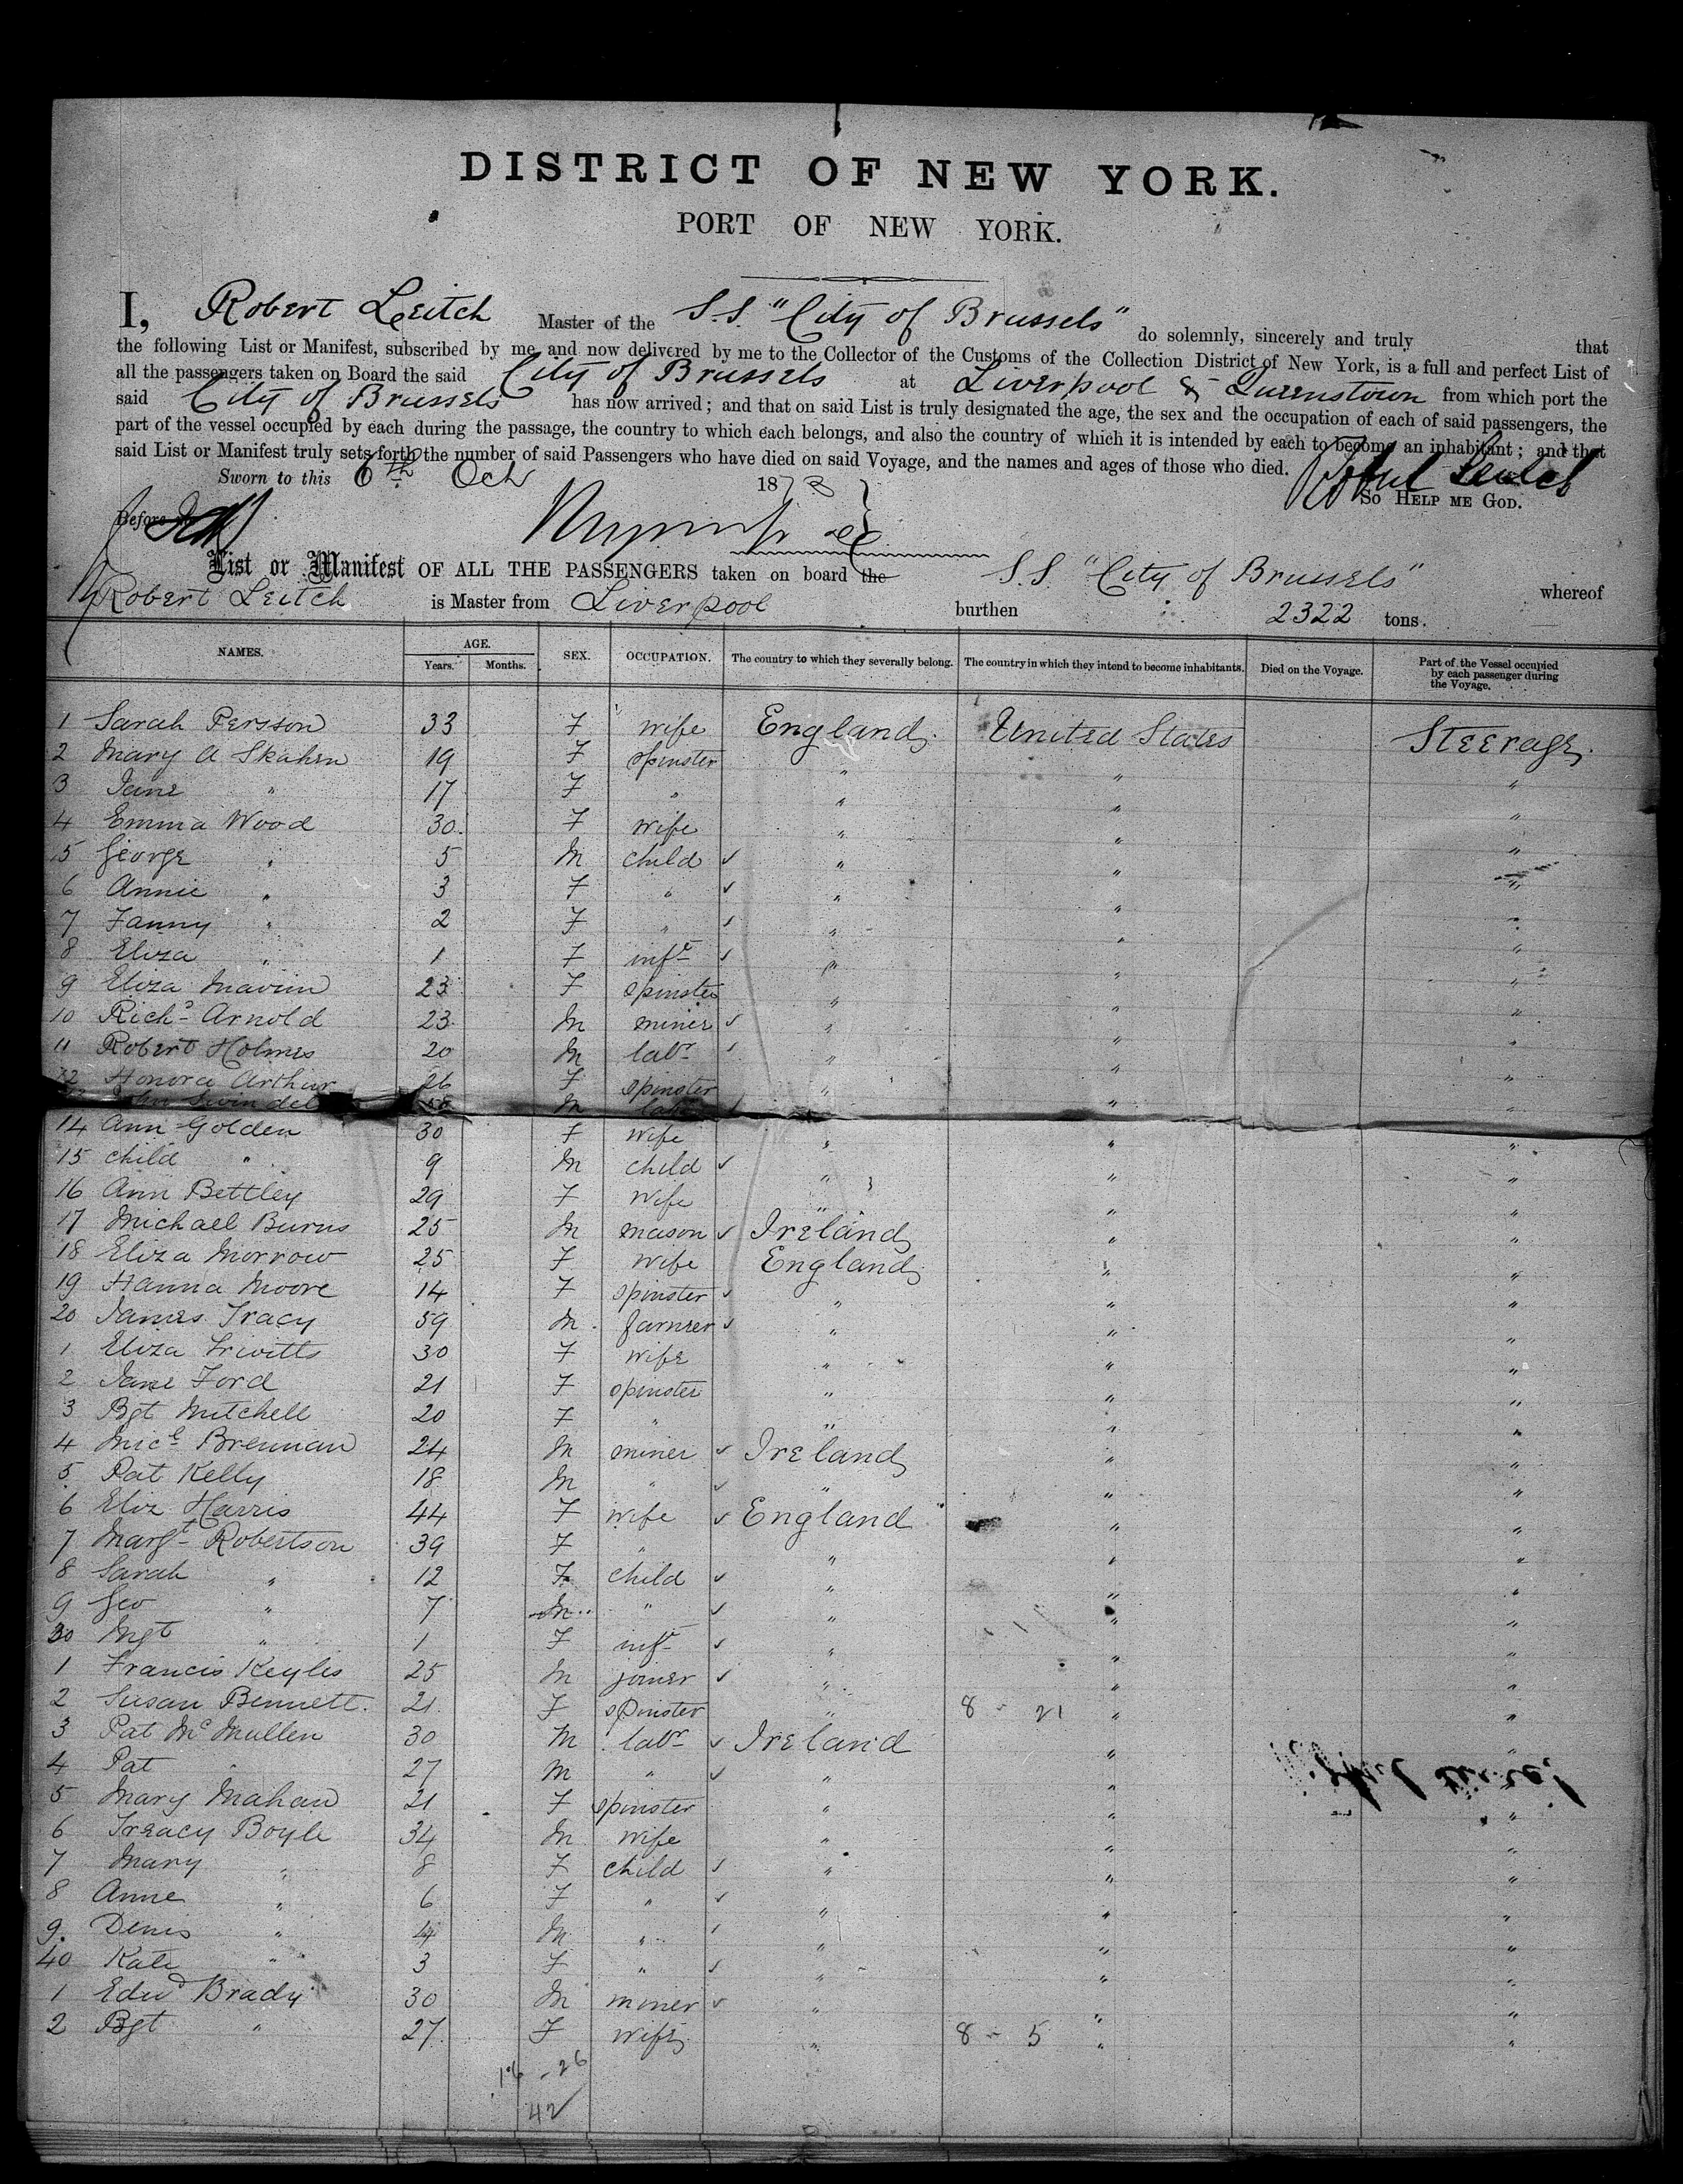 DISTRICT OF NEW YORK.
PORT OF NEW YORK.
I, Robert Leitch Master of the S.S. "City of Brussels" do solemnly, sincerely and truly that
the following List or Manifest, subscribed by me, and now delivered by me to the Collector of the Customs of the Collection District of New York, is a full and perfect List of
all the passengers taken on Board the said City of Brussels at Liverpool & Queenstown from which port the
said City of Brussels has now arrived; and that on said List is truly designated the age, the sex and the occupation of each of said passengers, the
part of the vessel occupied by each during the passage, the country to which each belongs, and also the country of which it is intended by each to become an inhabitant; and that
said List or Manifest truly sets forth the number of said Passengers who have died on said Voyage, and the names and ages of those who died. Robert Leitch
Sworn to this 6th Oct 1873 So HELP ME GOD.
Before
List or Manifest OF ALL THE PASSENGERS taken on board the S.S "City of Brussels" whereof
Robert Leitch is Master from Liverpool burthen 2322 tons.
NAMES. AGE. Years. Months. SEX. OCCUPATION. The country to which they severally belong. The country in which they intend to become inhabitants. Died on the Voyage. Part of the Vessel occupied by each passenger during the Voyage.
1 Sarah Persson 33 F wife England United States Steerage
2 Mary A Skahen 19 F spinster " " "
3 Jane " 17 F " " " "
4 Emma Wood 30 F wife " " "
5 George " 5 M child " " "
6 Annie " 3 F " " " "
7 Fanny " 2 F " " " "
8 Eliza " 1 F inft " " "
9 Eliza Mavin 23 F spinster " " "
10 Richd Arnold 23 M miner " " "
11 Robert Holmes 20 M labr " " "
12 Honora Arthur 26 F spinster " " "
John Swindel M lab
14 Ann Golden 30 F wife " " "
15 child " 9 M child " " "
16 Ann Bettley 29 F wife " " "
17 Michael Burns 25 M mason Ireland " "
18 Eliza Morrow 25 F wife England " "
19 Hanna Moore 14 F spinster " " "
20 James Tracy 59 M farmer " " "
1 Eliza Trivitts 30 F wife " " "
2 Jane Ford 21 F spinster " " "
3 Bgt Mitchell 20 F " " " "
4 Micl Brennan 24 M miner Ireland " "
5 Pat Kelly 18 M " " " "
6 Eliz Harris 44 F wife England " "
7 Margt Robertson 39 F " " " "
8 Sarah " 12 F child " " "
9 Geo " 7 M " " " "
30 Mgt " 1 F inft " " "
1 Francis Keylis 25 M joiner " " "
2 Susan Bennett 21 F spinster " 8 - 21 " "
3 Pat McMullen 30 M labr Ireland " "
4 Pat " 27 M " " " "
5 Mary Mahan 21 F spinster " " "
6 Treacy Boyle 34 M wife " " "
7 Mary " 8 F child " " "
8 Anne " 6 F " " " "
9. Denis " 4 M " " " "
40 Kate " 3 F " " " "
1 Edwd Brady 30 M miner " " "
2 Bgt " 27 F wife " 8 - 5 " "
16 - 26
42